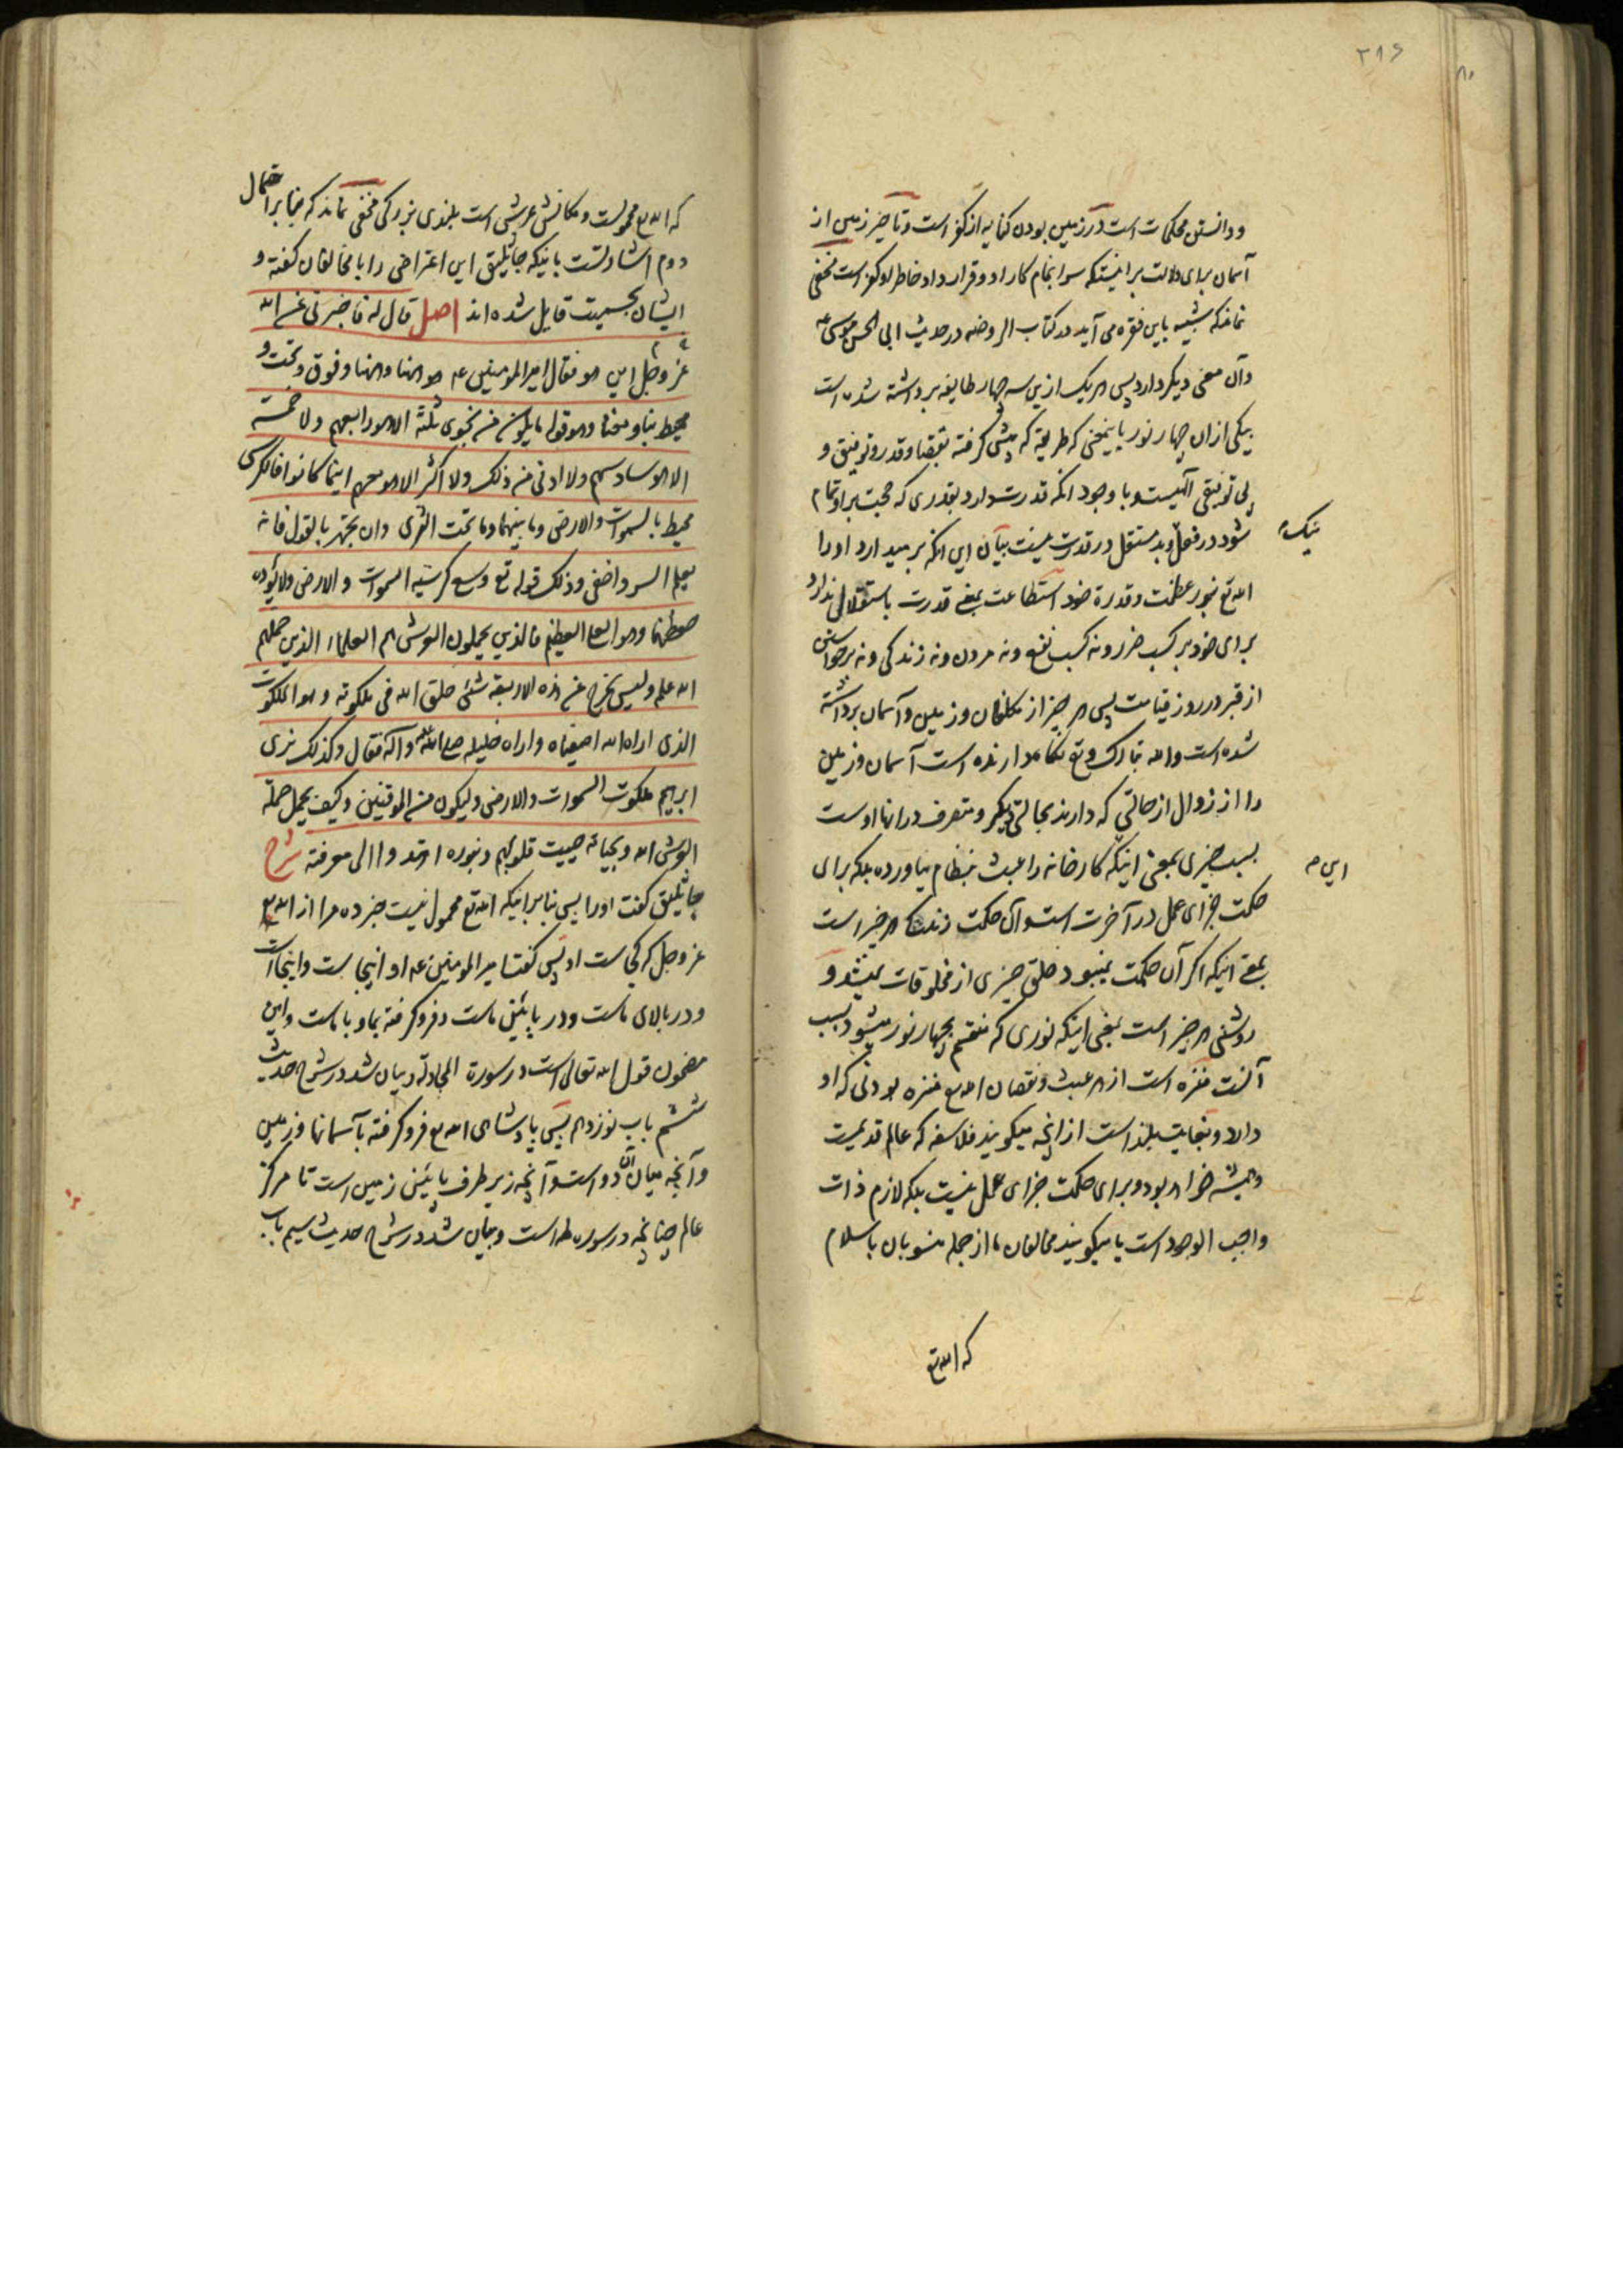 ۲۱۶
و دانستن محکمات است در زمین بودن کنایه از کفر است و تاخیر زمین از
آسمان برای دلالت بر اینستکه سرانجام کار او و قرار داد خاطر او کفر است مخفی
نماند که شبیه باین فقره می آید در کتاب الروضه در حدیث ابی الحسن موسی ع
و آن معنی دیگر دارد پس هر یک ازین سه چهار طایفه برداشته شده است
بیکی از ان چهار نور باینمعنی که طریقه که پیش گرفته بقضا و قدر و توفیق و
بی توفیقی الهیست و با وجود آنکه قدرت دارد بقدری که حجت بر او تمام
شود در فعل بد مستقل در قدرت نیست بیان این آنکه بر میدارد او را
نیک
الله تع بنور عظمت و قدرة خود استطاعت یعنی قدرت باستقلال ندارد
برای خود بر کسب ضرر و نه کسب نفع و نه مردن و نه زندگی و نه برخواستن
از قبر در روز قیامت پس هر چیز از مکلفان و زمین و آسمان برداشته
شده است و الله تبارک و تع نگاهدارنده است آسمان و زمین
را از زوال از حالتی که دارند بحالتی دیگر و متصرف در انها اوست
بسبب چیزی بمعنی اینکه کارخانه را عبث بنظام نیاورده بلکه برای
این
حکمت جزای عمل در آخرت است و آن حکمت زندگی هر چیز است
بمعنی اینکه اگر آن حکمت نمیبود خلق چیزی از مخلوقات نمیشد و
روشنی هر چیز است یعنی اینکه نوری که منقسم بچهار نور میشود بسبب
آنست منزه است از هر عبث و نقصان الله تع منزه بودنی که او
دارد و بغایت بلند است از انچه میگویند فلاسفه که عالم قدیمست
و همیشه خواهد بود و برای حکمت جزای عمل نیست بلکه لازم ذات
واجب الوجود است یا میگویند مخالفان ما از جمله منسوبان باسلام
که الله تع
که الله تع محمولست و مکانش عرش است بلندی بزرگی مخفی نماند که بنا بر احتمال
دوم اشارتست باینکه جاثلیق این اعتراض را با مخالفان گفته و
ایشان بجسمیت قایل شده اند اصل قال له فاخبرنی عن الله
عز و جل این هو فقال امیر المومنین ع هو ههنا و ههنا و فوق و تحت و
محیط بنا و معنا و هو قوله ما یکون من نجوی ثلثة الا هو رابعهم و لا خمسة
الا هو سادسهم و لا ادنی من ذلک و لا اکثر الا هو معهم اینما کانوا فالکرسی
محیط بالسموات و الارض و ما بینهما و ما تحت الثری و ان تجهر بالقول فانه
یعلم السر و اخفی و ذلک قوله تع وسع کرسیه السموات و الارض و لا یؤده
حفظهما و هو العلی العظیم فالذین یحملون العرش هم العلماء الذین حملهم
الله علمه و لیس یخرج عن هذه الاربعة شئ خلق الله فی ملکوته و هو الملکوت
الذی اراه الله اصفیاه و اراه خلیله صلی الله علیه و آله فقال و کذلک نری
ابرهیم ملکوت السموات و الارض و لیکون من الموقنین و کیف یحمل حملة
العرش الله و بحیاته حییت قلوبهم و بنوره اهتدوا الی معرفته شرح
جاثلیق گفت او را پس بنا بر اینکه الله تع محمول نیست خبر ده مرا از الله تع
عز و جل که کجاست او پس گفت امیر المومنین ع او اینجاست و اینجاست
و در بالای ماست و در پائین ماست و فرو گرفته بما و با ماست و این
مضمون قول الله تعالی است در سورة المجادلة و بیان شد در شرح حدیث
ششم باب نوزدهم پس پادشاهی الله تع فرو گرفته بآسمانها و زمین
و آنچه میان آن دو است و آنچه زیر طرف پائین زمین است تا مرکز
عالم چنانچه در سوره طه است و بیان شد در شرح حدیث سیم باب